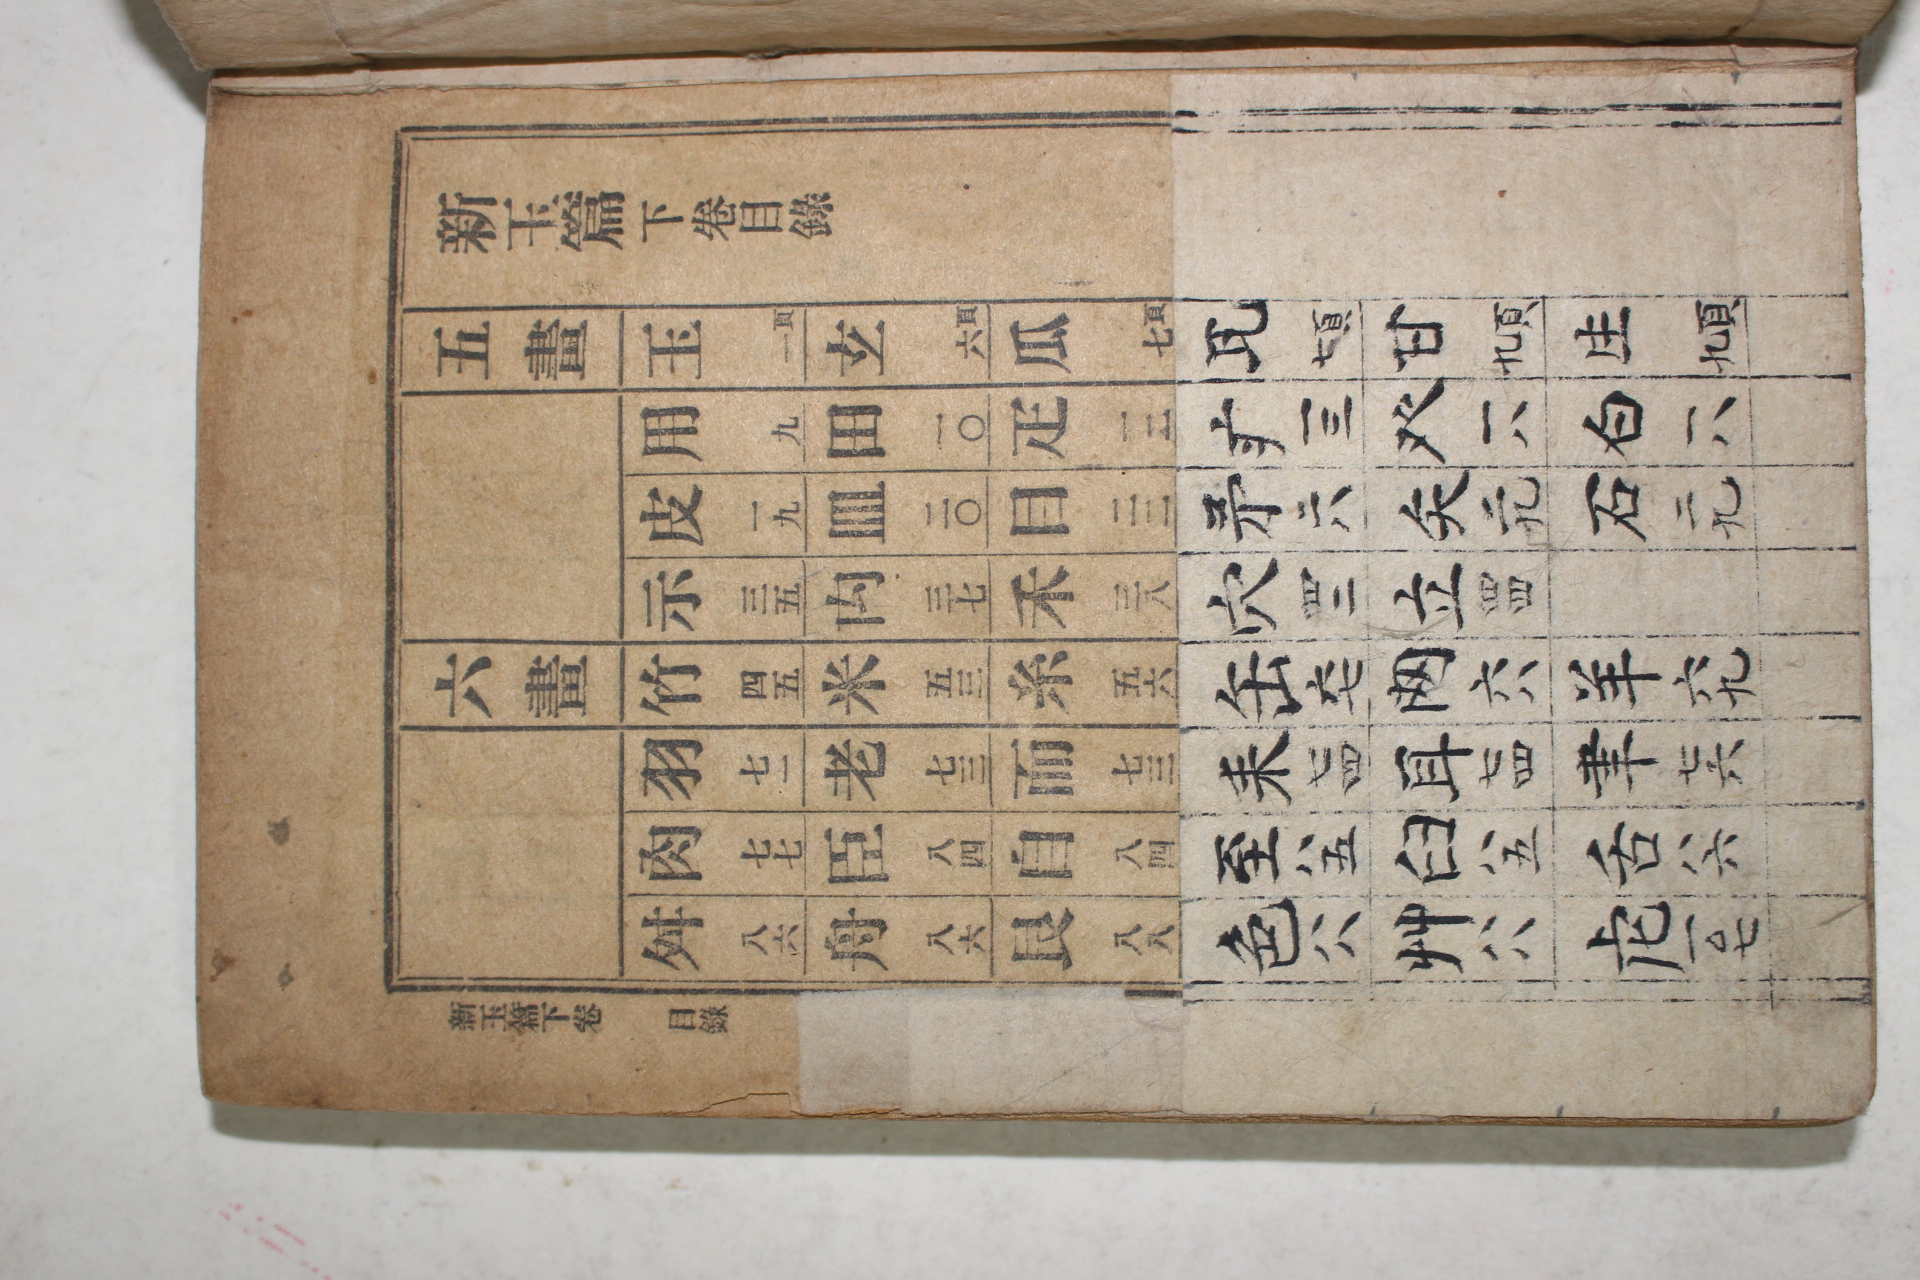 新玉篇下卷目錄
五畫 玉 一頁 玄 六頁 瓜 七頁 瓦 七頁 甘 九頁 生 九頁
用 九 田 一〇 疋 一二 疒 一三 癶 一八 白 一八
皮 一九 皿 二〇 目 二二 矛 二六 矢 二九 石 二九
示 三五 禸 三七 禾 三八 穴 四二 立 四四
六畫 竹 四五 米 五三 糸 五六 缶 六七 网 六八 羊 六九
羽 七一 老 七三 而 七三 耒 七四 耳 七四 聿 七六
肉 七七 臣 八四 自 八四 至 八五 臼 八五 舌 八六
舛 八六 舟 八六 艮 八八 色 八八 艸 八八 虍 一〇七
新玉篇下卷 目錄